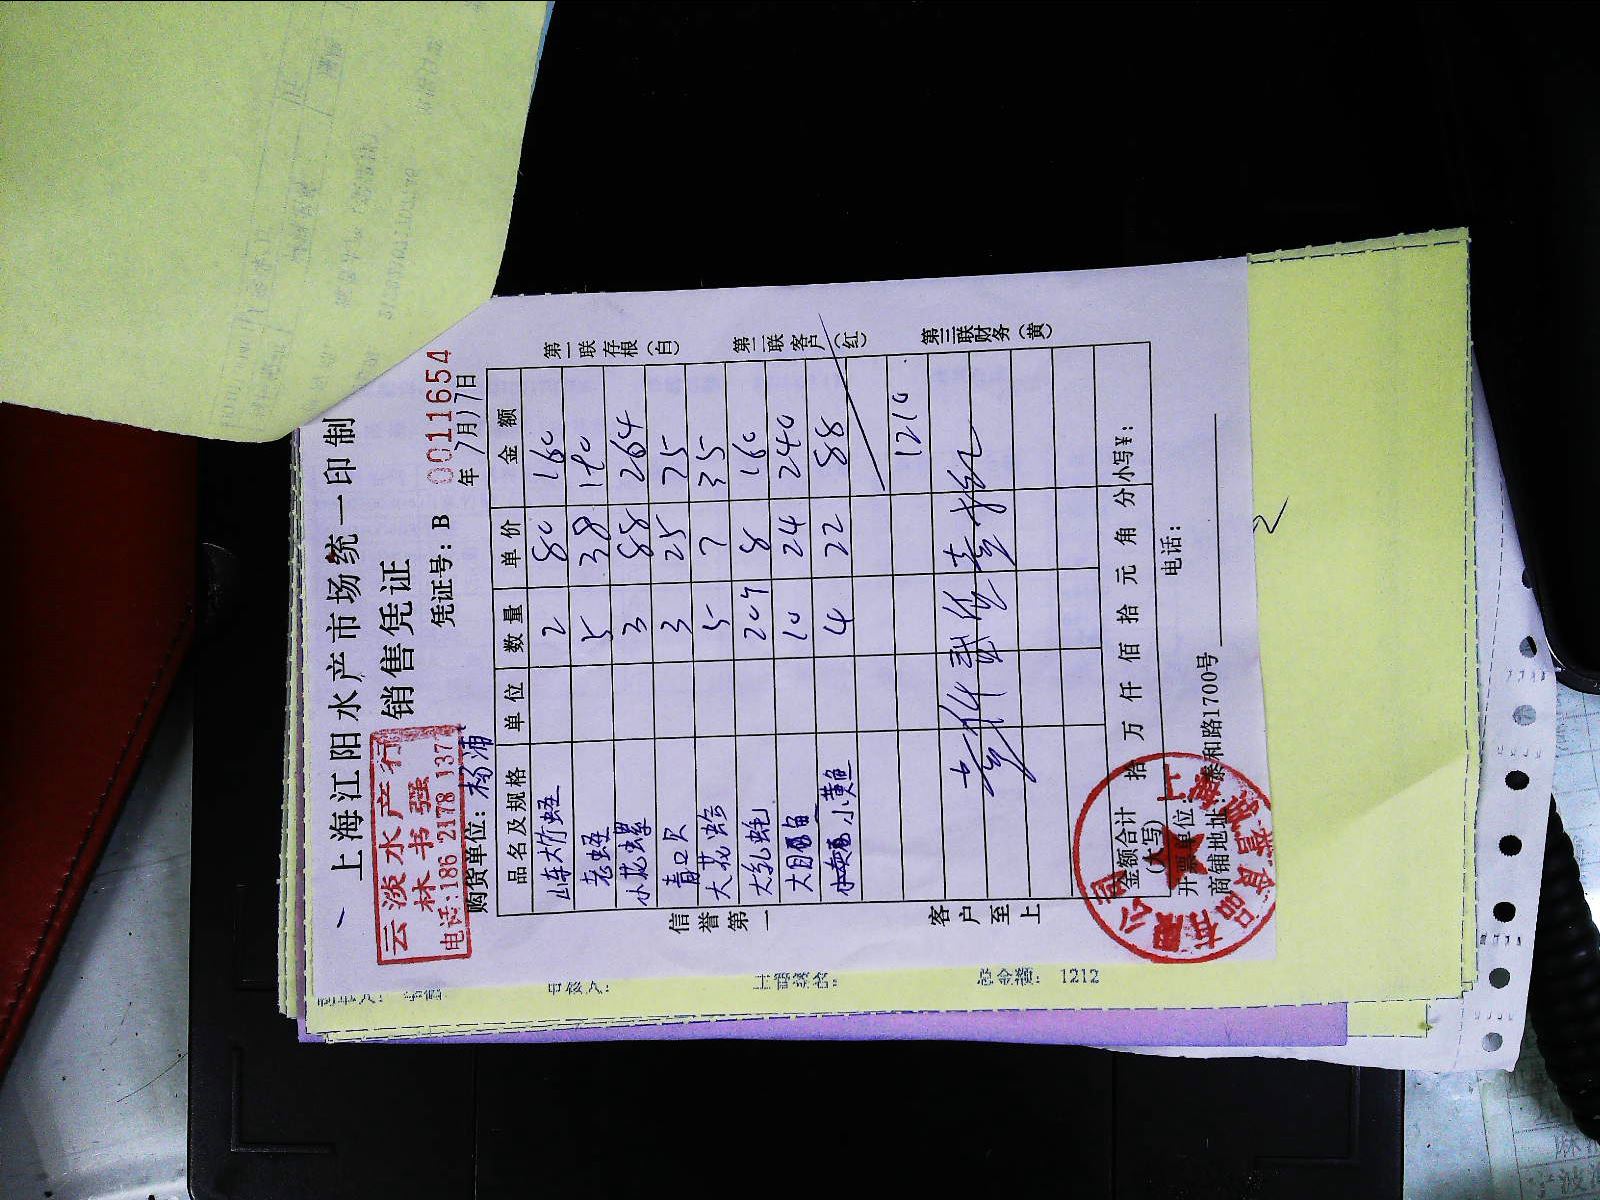 上海江阳水产市场统一印制
销售凭证
云淡水产行
林书强
电话:186 2178 137
凭证号: B 0011654
购货单位: 杨浦 年 7月17日
品名及规格 单位 数量 单价 金额
山东大竹蛏 2 80 160
老蛏 5 38 190
小花螺 3 88 264
青口贝 3 25 75
大花蛤 5 7 35
大乳蚝 20个 8 160
大目鱼 10 24 240
小黄鱼 4 22 88
1210
壹仟贰佰壹拾
金额合计 拾 万 仟 佰 拾 元 角 分 小写¥:
(大写)
开票单位: 电话:
商铺地址: 泰和路1700号
信誉第一
客户至上
第一联存根(白)
第二联客户(红)
第三联财务(黄)
总金额: 1212